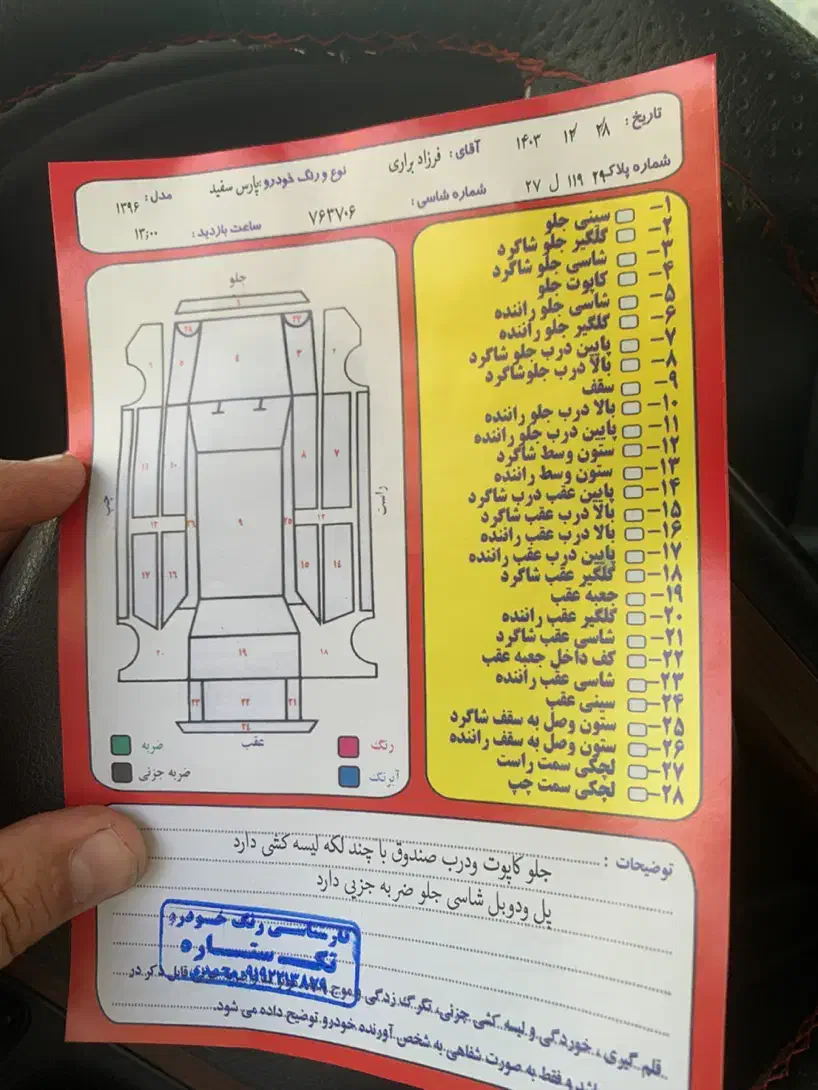 تاریخ: ۱۴۰۳ ۱۲ ۲۸
آقای: فرزاد براری
نوع و رنگ خودرو: پارس سفید
مدل: ۱۳۹۶
شماره پلاک: ۲۹ ۱۱۹ ل ۲۷
شماره شاسی: ۷۶۳۷۰۶
ساعت بازدید: ۱۳:۰۰
۱- سینی جلو
۲- گلگیر جلو شاگرد
۳- شاسی جلو شاگرد
۴- کاپوت جلو
۵- شاسی جلو راننده
۶- گلگیر جلو راننده
۷- پایین درب جلو شاگرد
۸- بالا درب جلوشاگرد
۹- سقف
۱۰- بالا درب جلو راننده
۱۱- پایین درب جلو راننده
۱۲- ستون وسط شاگرد
۱۳- ستون وسط راننده
۱۴- پایین عقب درب شاگرد
۱۵- بالا درب عقب شاگرد
۱۶- بالا درب عقب راننده
۱۷- پایین درب عقب راننده
۱۸- گلگیر عقب شاگرد
۱۹- جعبه عقب
۲۰- گلگیر عقب راننده
۲۱- شاسی عقب شاگرد
۲۲- کف داخل جعبه عقب
۲۳- شاسی عقب راننده
۲۴- سینی عقب
۲۵- ستون وصل به سقف شاگرد
۲۶- ستون وصل به سقف راننده
۲۷- لچکی سمت راست
۲۸- لچکی سمت چپ
جلو
۱
۲۸ ۲۷
۶ ۵ ۴ ۳ ۲
۱۱ ۱۰ ۸ ۷
چپ راست
۱۳ ۲۶ ۹ ۲۵ ۱۲
۱۷ ۱۶ ۱۵ ۱۴
۲۰ ۱۹ ۱۸
۲۳ ۲۲ ۲۱
۲۴
عقب
رنگ
ضربه
آبرنگ
ضربه جزئی
توضیحات :
جلو کاپوت ودرب صندوق با چند لکه لیسه کشی دارد
پل ودوبل شاسی جلو ضربه جزیی دارد
کارشناسی رنگ خودرو
تک ستاره
قلم گیری، خوردگی و لیسه کشی جزئی، تگرگ زدگی و موج قابل ذکر در
فقط به صورت شفاهی به شخص آورنده خودرو توضیح داده می شود.